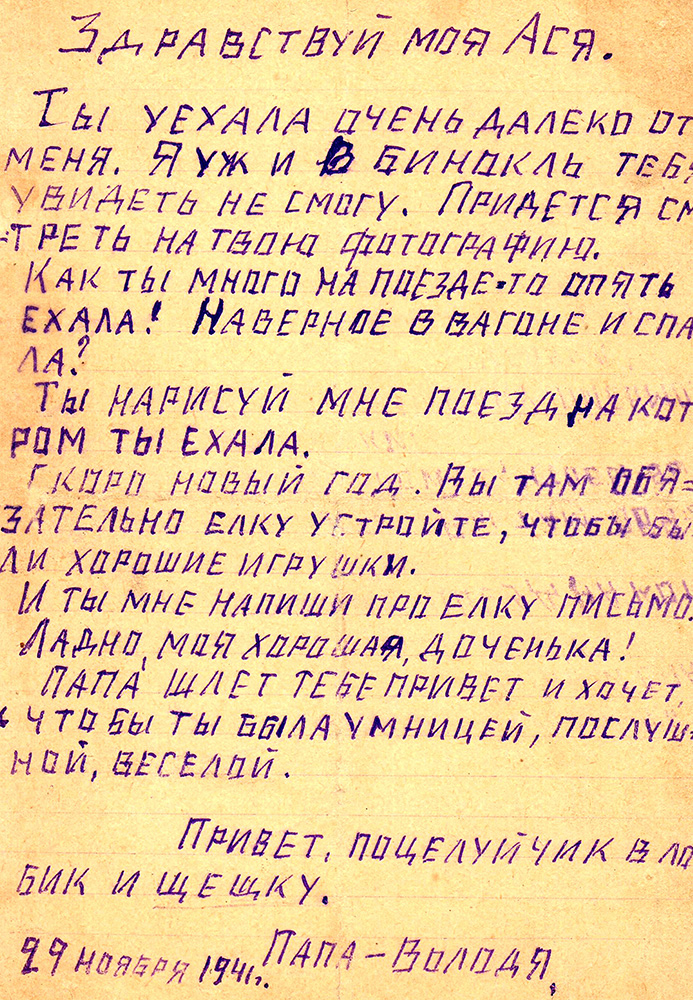 Здравствуй моя Ася.
Ты уехала очень далеко от
меня. Я уж и в бинокль тебя
увидеть не смогу. Придется см
=треть на твою фотографию.
Как ты много на поезде-то опять
ехала! Наверное в вагоне и спа
ла?
Ты нарисуй мне поезд на кот
ром ты ехала.
Скоро новый год. Вы там обя=
зательно елку устройте, чтобы бы
ли хорошие игрушки.
И ты мне напиши про елку письмо.
Ладно, моя хорошая, доченька!
Папа шлет тебе привет и хочет,
чтобы ты была умницей, послуш=
ной, веселой.
Привет, поцелуйчик в ло
бик и щещку.
29 ноября 1941г. Папа-Володя.